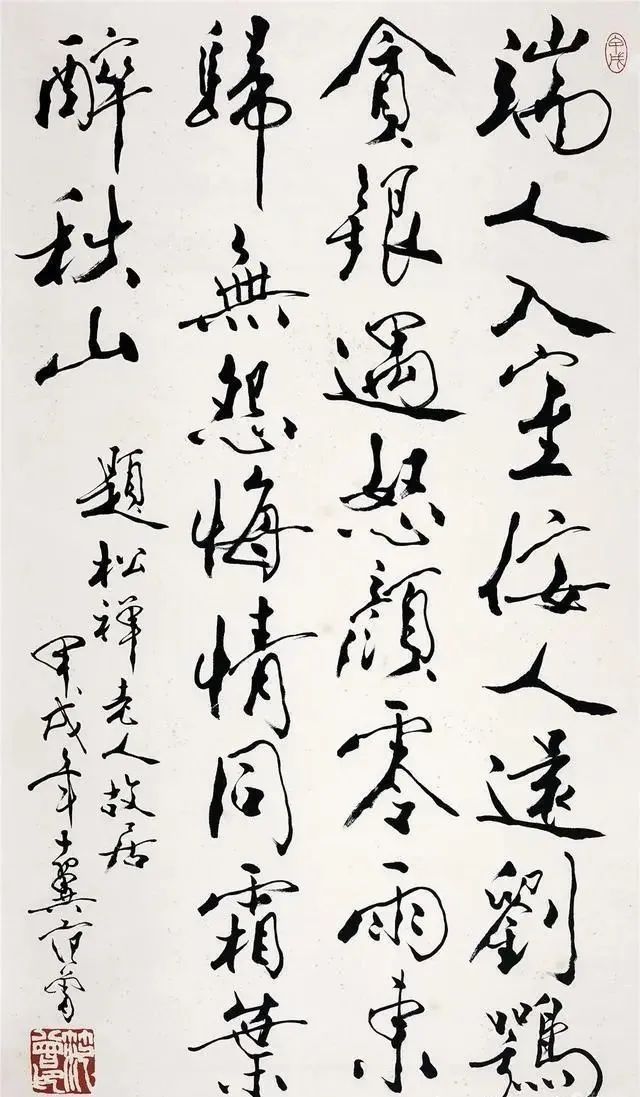 端人入室佞人還劉鶚
貪銀遇怒顏零雨東
歸無怨悔情同霜葉
醉秋山
題松禅老人故居
甲戌年十翼范曾